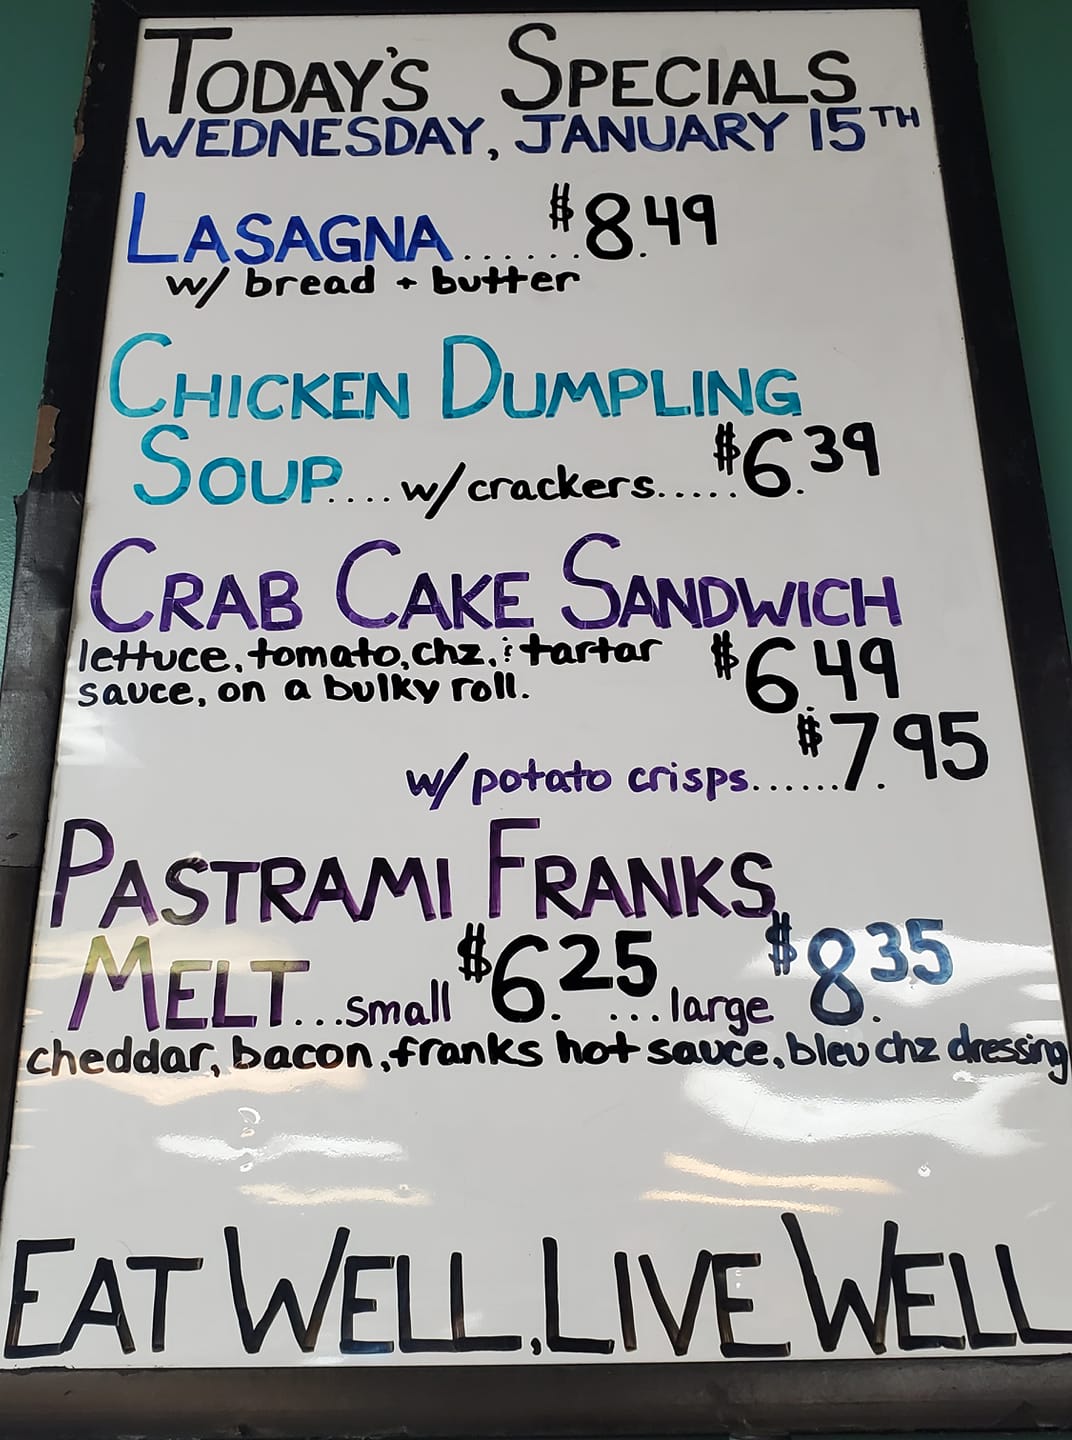 TODAY'S SPECIALS
WEDNESDAY, JANUARY 15TH
LASAGNA.......$8.49
w/ bread + butter
CHICKEN DUMPLING
SOUP....w/crackers.....$6.39
CRAB CAKE SANDWICH
lettuce, tomato, chz, & tartar $6.49
sauce, on a bulky roll.
w/ potato crisps......$7.95
PASTRAMI FRANKS
MELT...small $6.25 ...large $8.35
cheddar, bacon, franks hot sauce, bleu chz dressing
EAT WELL, LIVE WELL